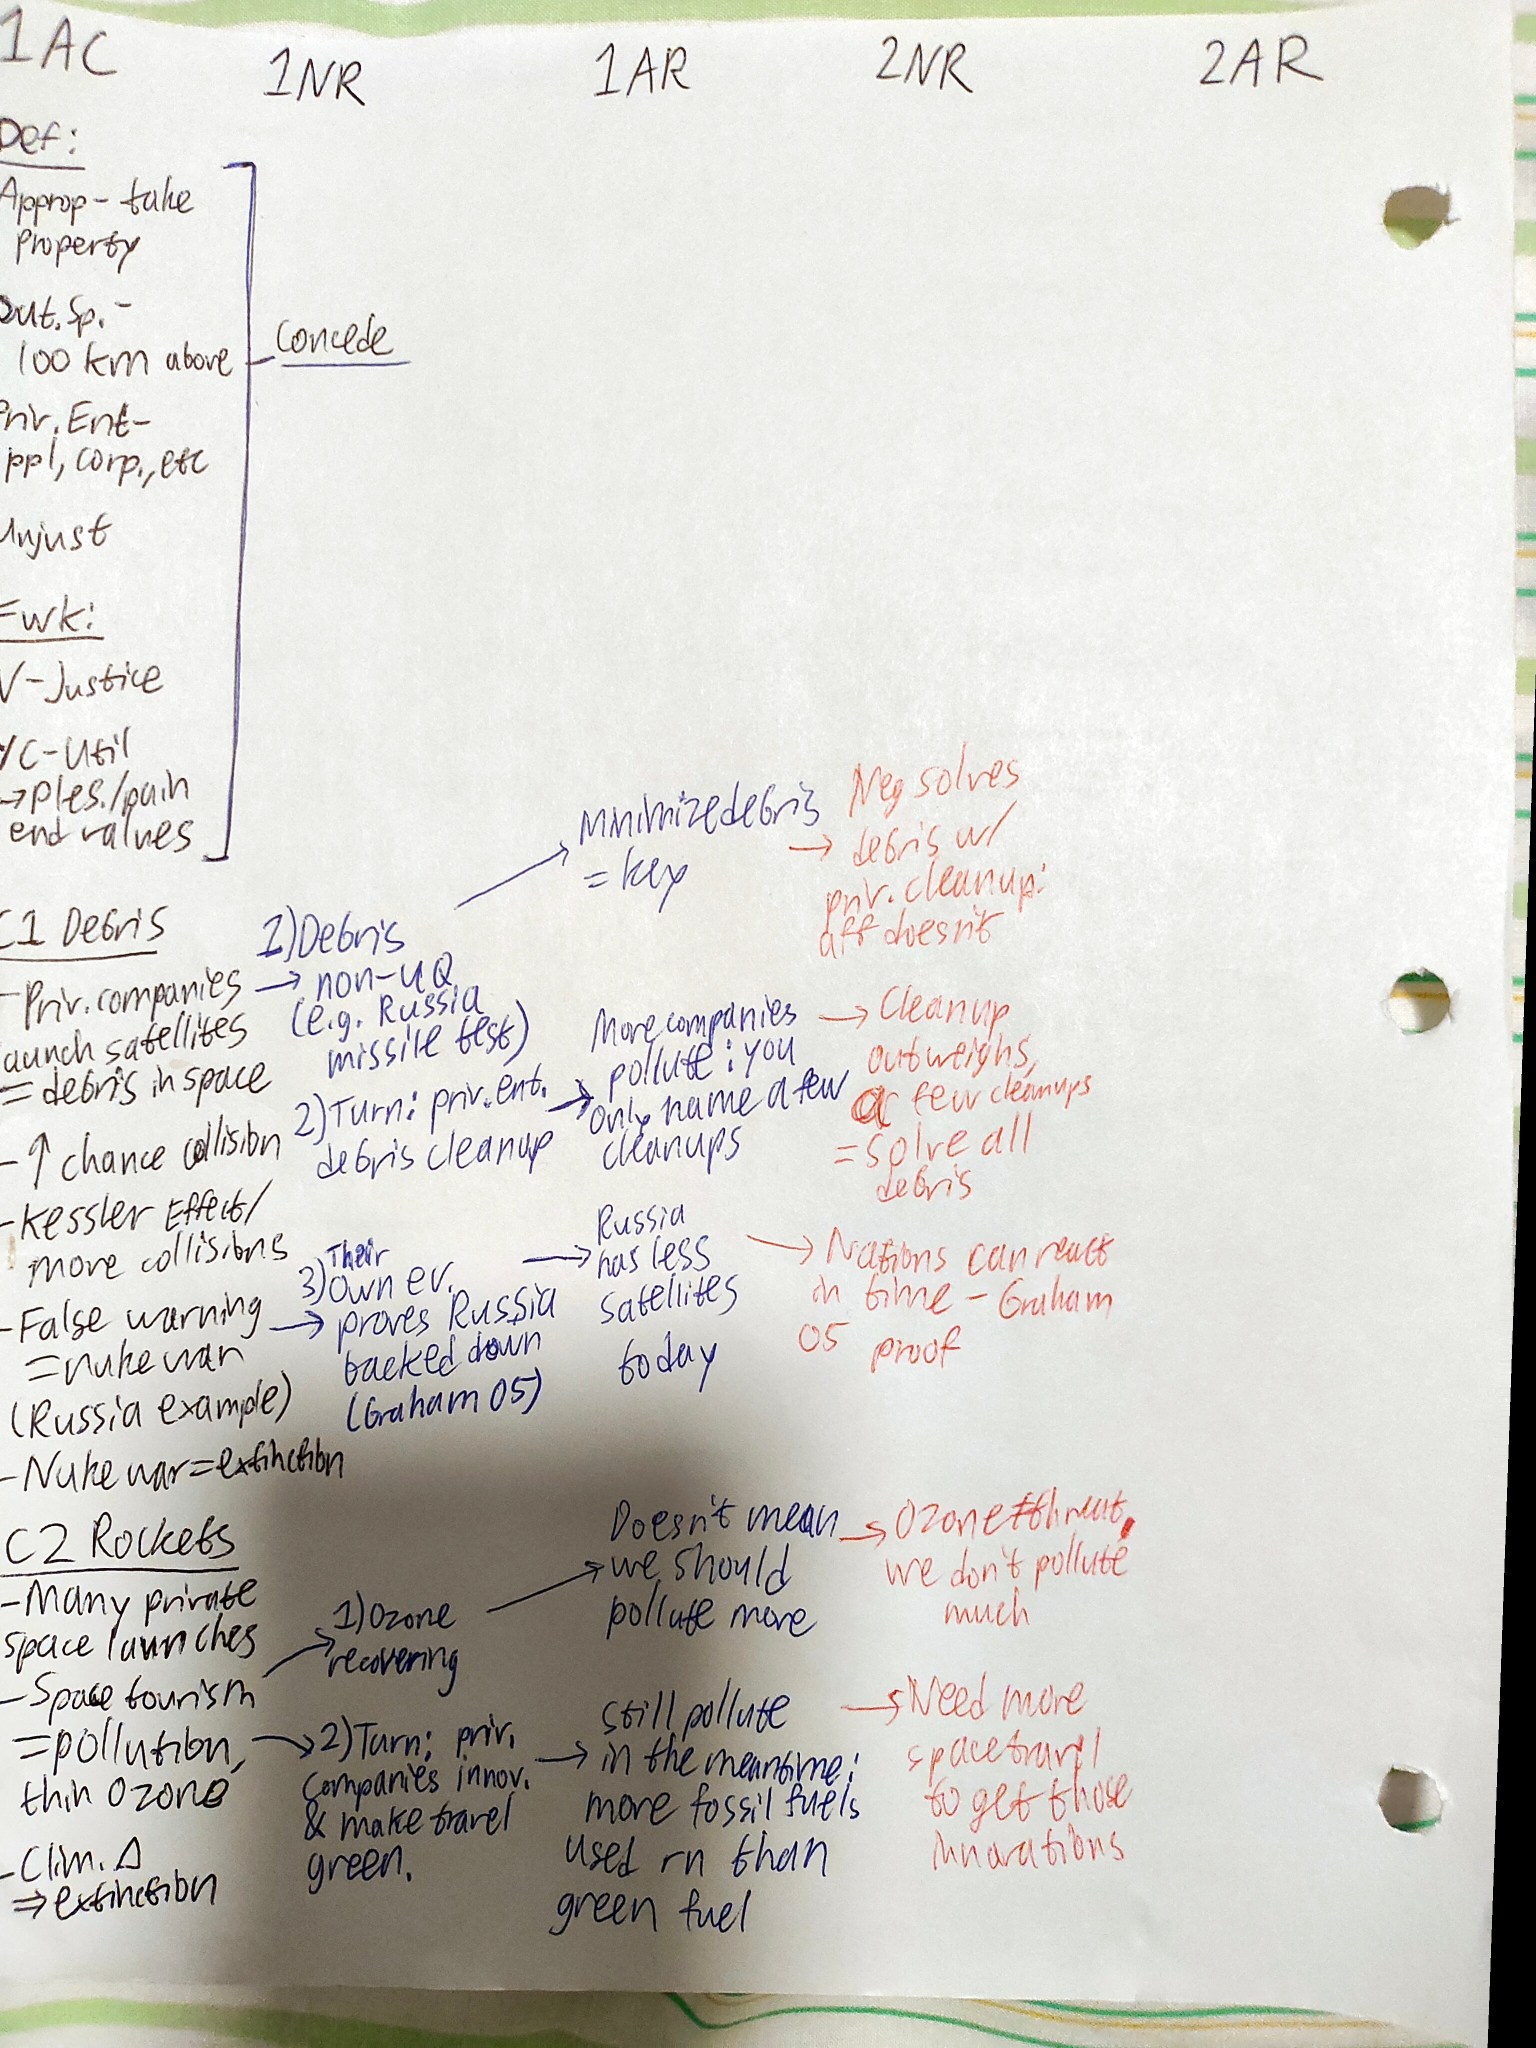 1AC
1NR
1AR
2NR
2AR
Def:
Approp- take
property
Out. Sp. -
100 km above
Priv. Ent-
ppl, corp., etc
Unjust
Fwk:
V-Justice
VC-Util
→ ples./pain
end values
Concede
C1 Debris
- Priv. companies
launch satellites
= debris in space
- ↑ chance collision
- Kessler Effect/
more collisions
- False warning
= nuke war
(Russia example)
- Nuke war = extinction
1) Debris
→ non-UQ
(e.g. Russia
missile test)
2) Turn: priv. ent.
debris cleanup
Their
3) Own ev.
→ proves Russia
backed down
(Graham 05)
→ Minimize debris
= key
More companies
→ pollute: you
only name a few
cleanups
→ Russia
has less
satellites
today
Neg solves
→ debris w/
priv. cleanup:
aff doesn't
→ Cleanup
outweighs,
a few cleanups
= solve all
debris
→ Nations can react
in time - Graham
05 proof
C2 Rockets
- Many private
space launches
- Space tourism
= pollution,
thin Ozone
- Clim. Δ
⇒ extinction
→ 1) Ozone
recovering
→ 2) Turn: priv.
companies innov.
& make travel
green.
Doesn't mean
→ we should
pollute more
still pollute
→ in the meantime:
more fossil fuels
used rn than
green fuel
→ Ozone ≠ threat,
we don't pollute
much
→ Need more
space travel
to get those
innovations